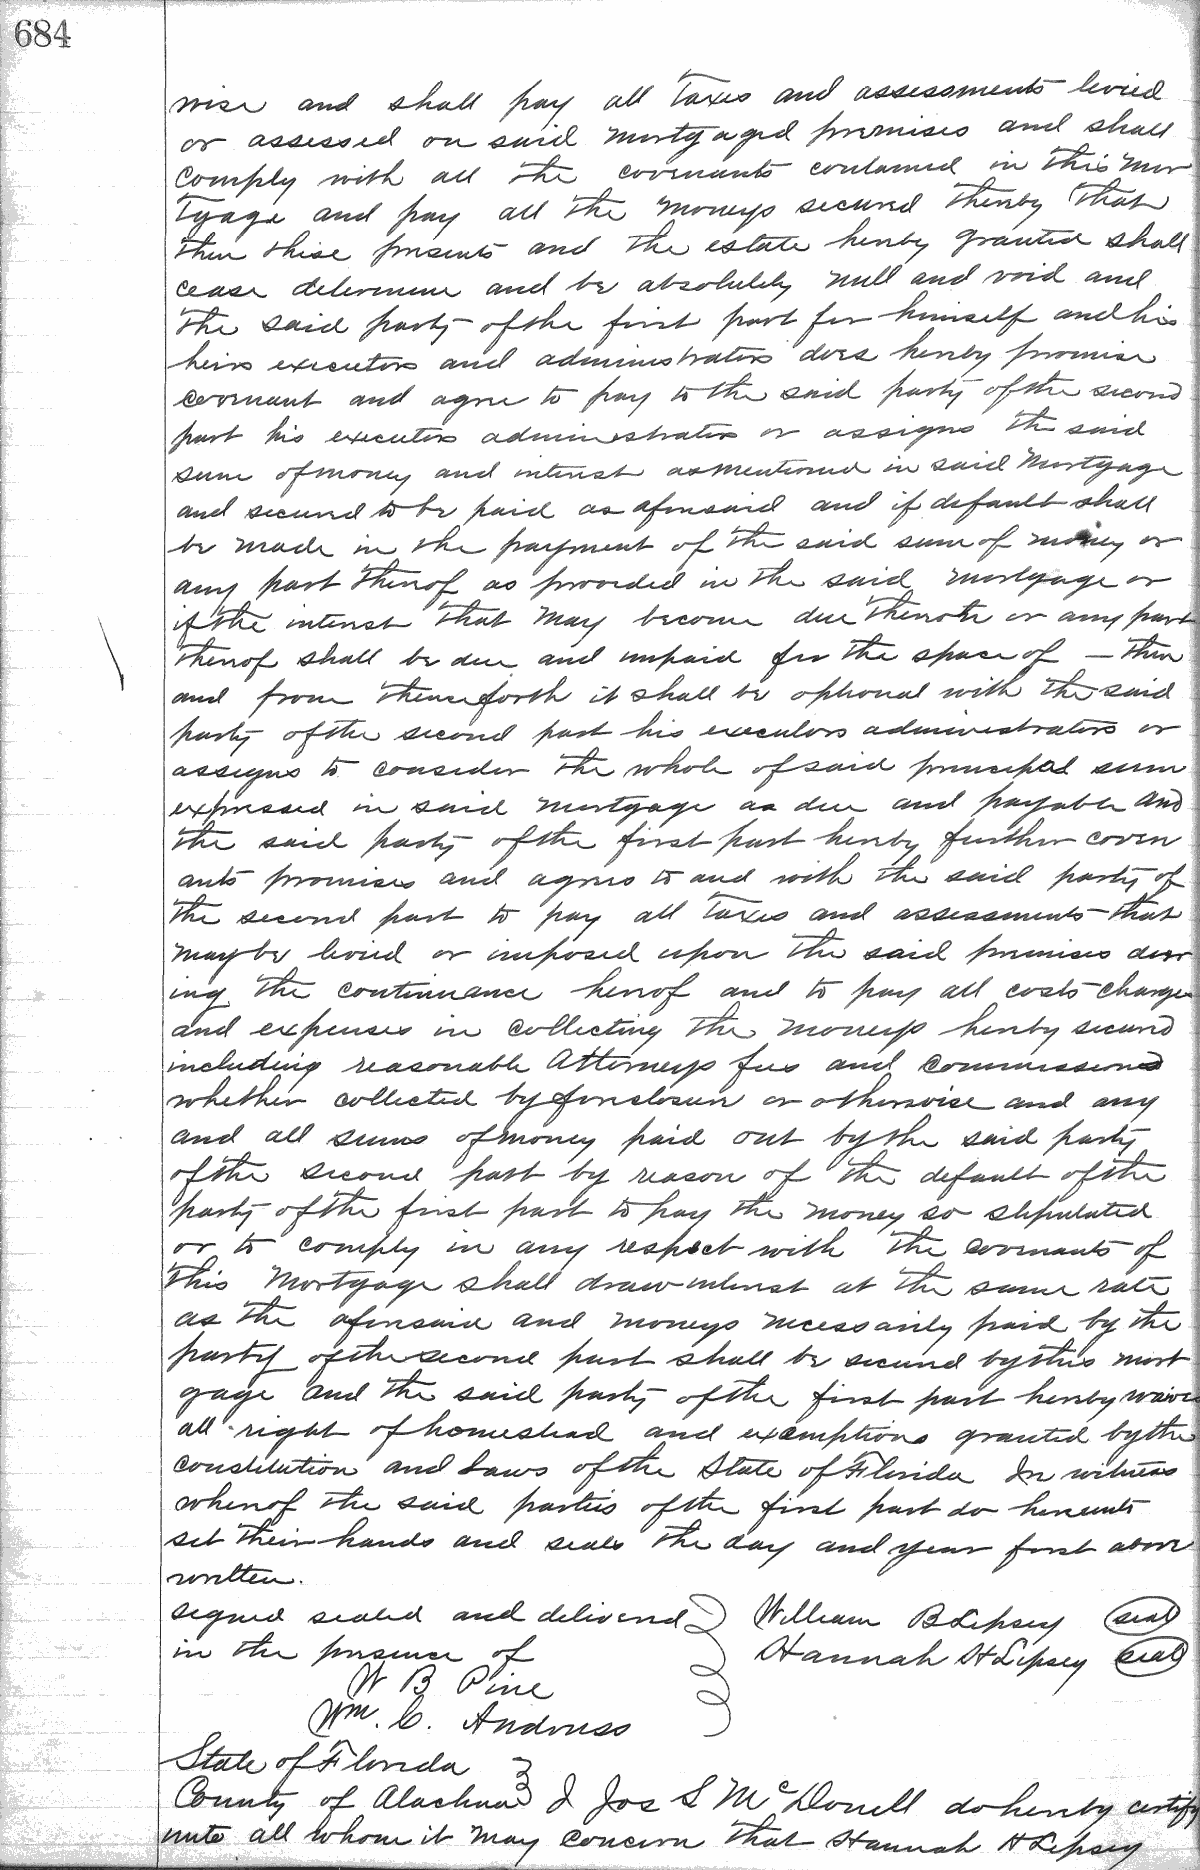 684
wise and shall pay all taxes and assessments levied
or assessed on said mortgaged premises and shall
comply with all the covenants contained in this mor
tgage and pay all the moneys secured thereby that
then these presents and the estate hereby granted shall
cease determine and be absolutely null and void and
the said party of the first part for himself and his
heirs executors and administrators does hereby promise
covenant and agree to pay to the said party of the second
part his executors administrators or assigns the said
sum of money and interest as mentioned in said mortgage
and secured to be paid as aforesaid and if default shall
be made in the payment of the said sum of money or
any part thereof as provided in the said mortgage or
if the interest that may become due thereon or any part
thereof shall be due and unpaid for the space of — then
and from thenceforth it shall be optional with the said
party of the second part his executors administrators or
assigns to consider the whole of said principal sum
expressed in said mortgage as due and payable and
the said party of the first part hereby further coven
ants promises and agrees to and with the said party of
the second part to pay all taxes and assessments that
may be levied or imposed upon the said premises dur
ing the continuance hereof and to pay all costs charges
and expenses in collecting the moneys hereby secured
including reasonable Attorneys fees and commissions
whether collected by foreclosure or otherwise and any
and all sums of money paid out by the said party
of the second part by reason of the default of the
party of the first part to pay the money so stipulated
or to comply in any respect with the covenants of
this Mortgage shall draw interest at the same rate
as the aforesaid and moneys necessarily paid by the
party of the second part shall be secured by this mort
gage and the said party of the first part hereby waives
all right of homestead and exemptions granted by the
constitution and Laws of the State of Florida In witness
whereof the said parties of the first part do hereunto
set their hands and seals the day and year first above
written.
signed sealed and delivered William B Lipsey seal
in the presence of Hannah H Lipsey seal
W B Pine
Wm. C. Andruss
State of Florida
County of Alachua I Jos S McDonell do hereby certify
unto all whom it may concern that Hannah H Lipsey